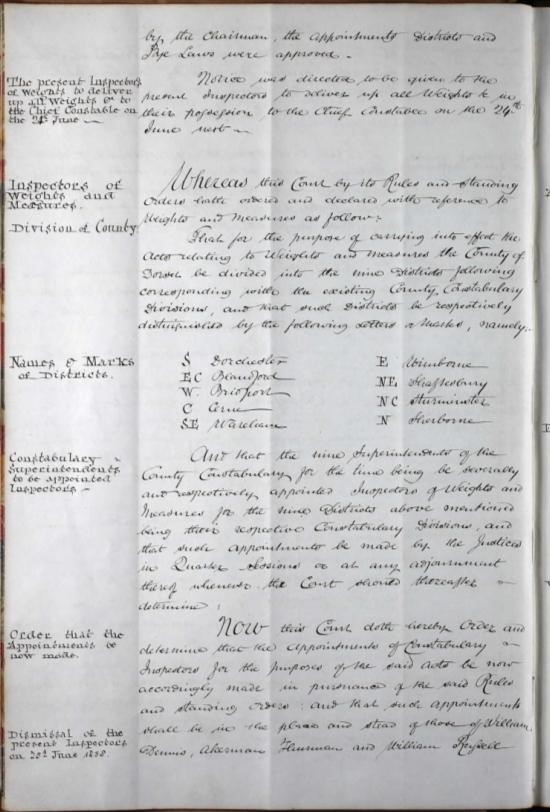 by the Chairman, the appointments Districts and
Bye Laws were approved.
The present Inspectors
of Weights to deliver
up all Weights &c to
the Chief Constable on
the 24th June
Notice was directed to be given to the
present Inspectors to deliver up all Weights &c in
their possession to the Chief Constable on the 24th
June next
Inspectors of
Weights and
Measures.
Division of County
Whereas this Court by its Rules and Standing
Orders hath ordered and declared with reference to
Weights and Measures as follow:
That for the purpose of carrying into effect the
Acts relating to Weights and Measures the County of
Dorset be divided into the nine Districts following
corresponding with the existing County Constabulary
Divisions, and that such Districts be respectively
distinguished by the following Letters or Marks, namely.
Names & Marks
of Districts.
S Dorchester
EC Blandford
W. Bridport
C Cerne
SE Wareham
E Wimborne
NE Shaftesbury
NC Sturminster
N Sherborne
Constabulary
Superintendents
to be appointed
Inspectors
And that the nine Superintendents of the
County Constabulary for the time being be severally
and respectively appointed Inspectors of Weights and
Measures for the nine Districts above mentioned
being their respective Constabulary Divisions, and
that such appointments be made by the Justices
in Quarter Sessions or at any adjournment
thereof whenever the Court should thereafter
determine:
Order that the
Appointments be
now made.
Now this Court doth hereby Order and
determine that the appointments of Constabulary
Inspectors for the purposes of the said Acts be now
accordingly made in pursuance of the said Rules
and standing orders: and that such appointments
shall be in the place and stead of those of William
Dismissal of the
present Inspectors
on June
Dennis, Akerman and William Russell